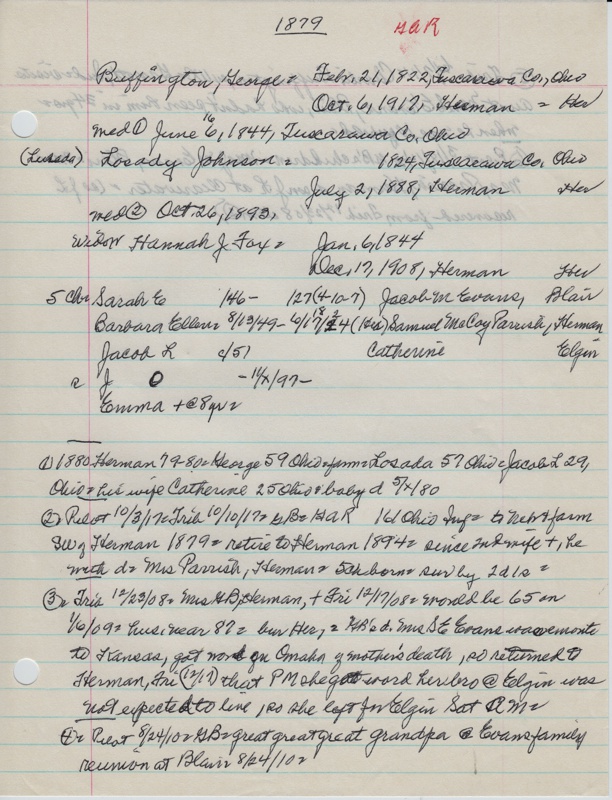 1879 GAR
Buffington, George = Feb. 21, 1822, Tuscarawa Co, Ohio
Oct. 6, 1917, Herman = Her
med ① June 16, 1844, Tuscarawa Co. Ohio
(Lusada) Losady Johnson = 1824, Tuscarawa Co, Ohio
July 2, 1888, Herman Her
med ② Oct. 26, 1893,
Widow Hannah J. Fox = Jan, 6, 1844
Dec, 17, 1908, Herman Her
5 Chr Sarah E /46 - 127 (4-10-7) Jacob M Evans, Blair
Barbara Ellen = 8/13/49 - Samuel McCoy Parrish, Herman
Jacob L c/51 Catherine Elgin
J O - /97 -
Emma + @ 8 yr =
① 1880 Herman 79-80 = George 59 Ohio = farm = Losada 57 Ohio = Jacob L 29,
Ohio = his wife Catherine 25 Ohio = baby d 5/x/80
② Pilot 10/3/17 = Trib 10/10/17 = GB = GAR 161 Ohio Inf = to Neb & farm
SW of Herman 1879 = retire to Herman 1894 = since 2nd wife +, he
with d = Mrs Parrish, Herman = 5 ch born = sur by 2 d 1 s =
③ Trib 12/23/08 = Mrs GB, Herman, + Fri 12/17/08 = would be 65 on
1/6/09 = hus. near 87 = bur Her, = GB's d. Mrs S E Evans was enroute
to Kansas, got word in Omaha of mother's death, so returned to
Herman, Fri (12/17) that PM she got word her bro @ Elgin was
not expected to live, so she left for Elgin Sat AM =
④ = Pilot 8/24/10 = GB = great great great grandpa @ Evans family
reunion at Blair 8/24/10 =